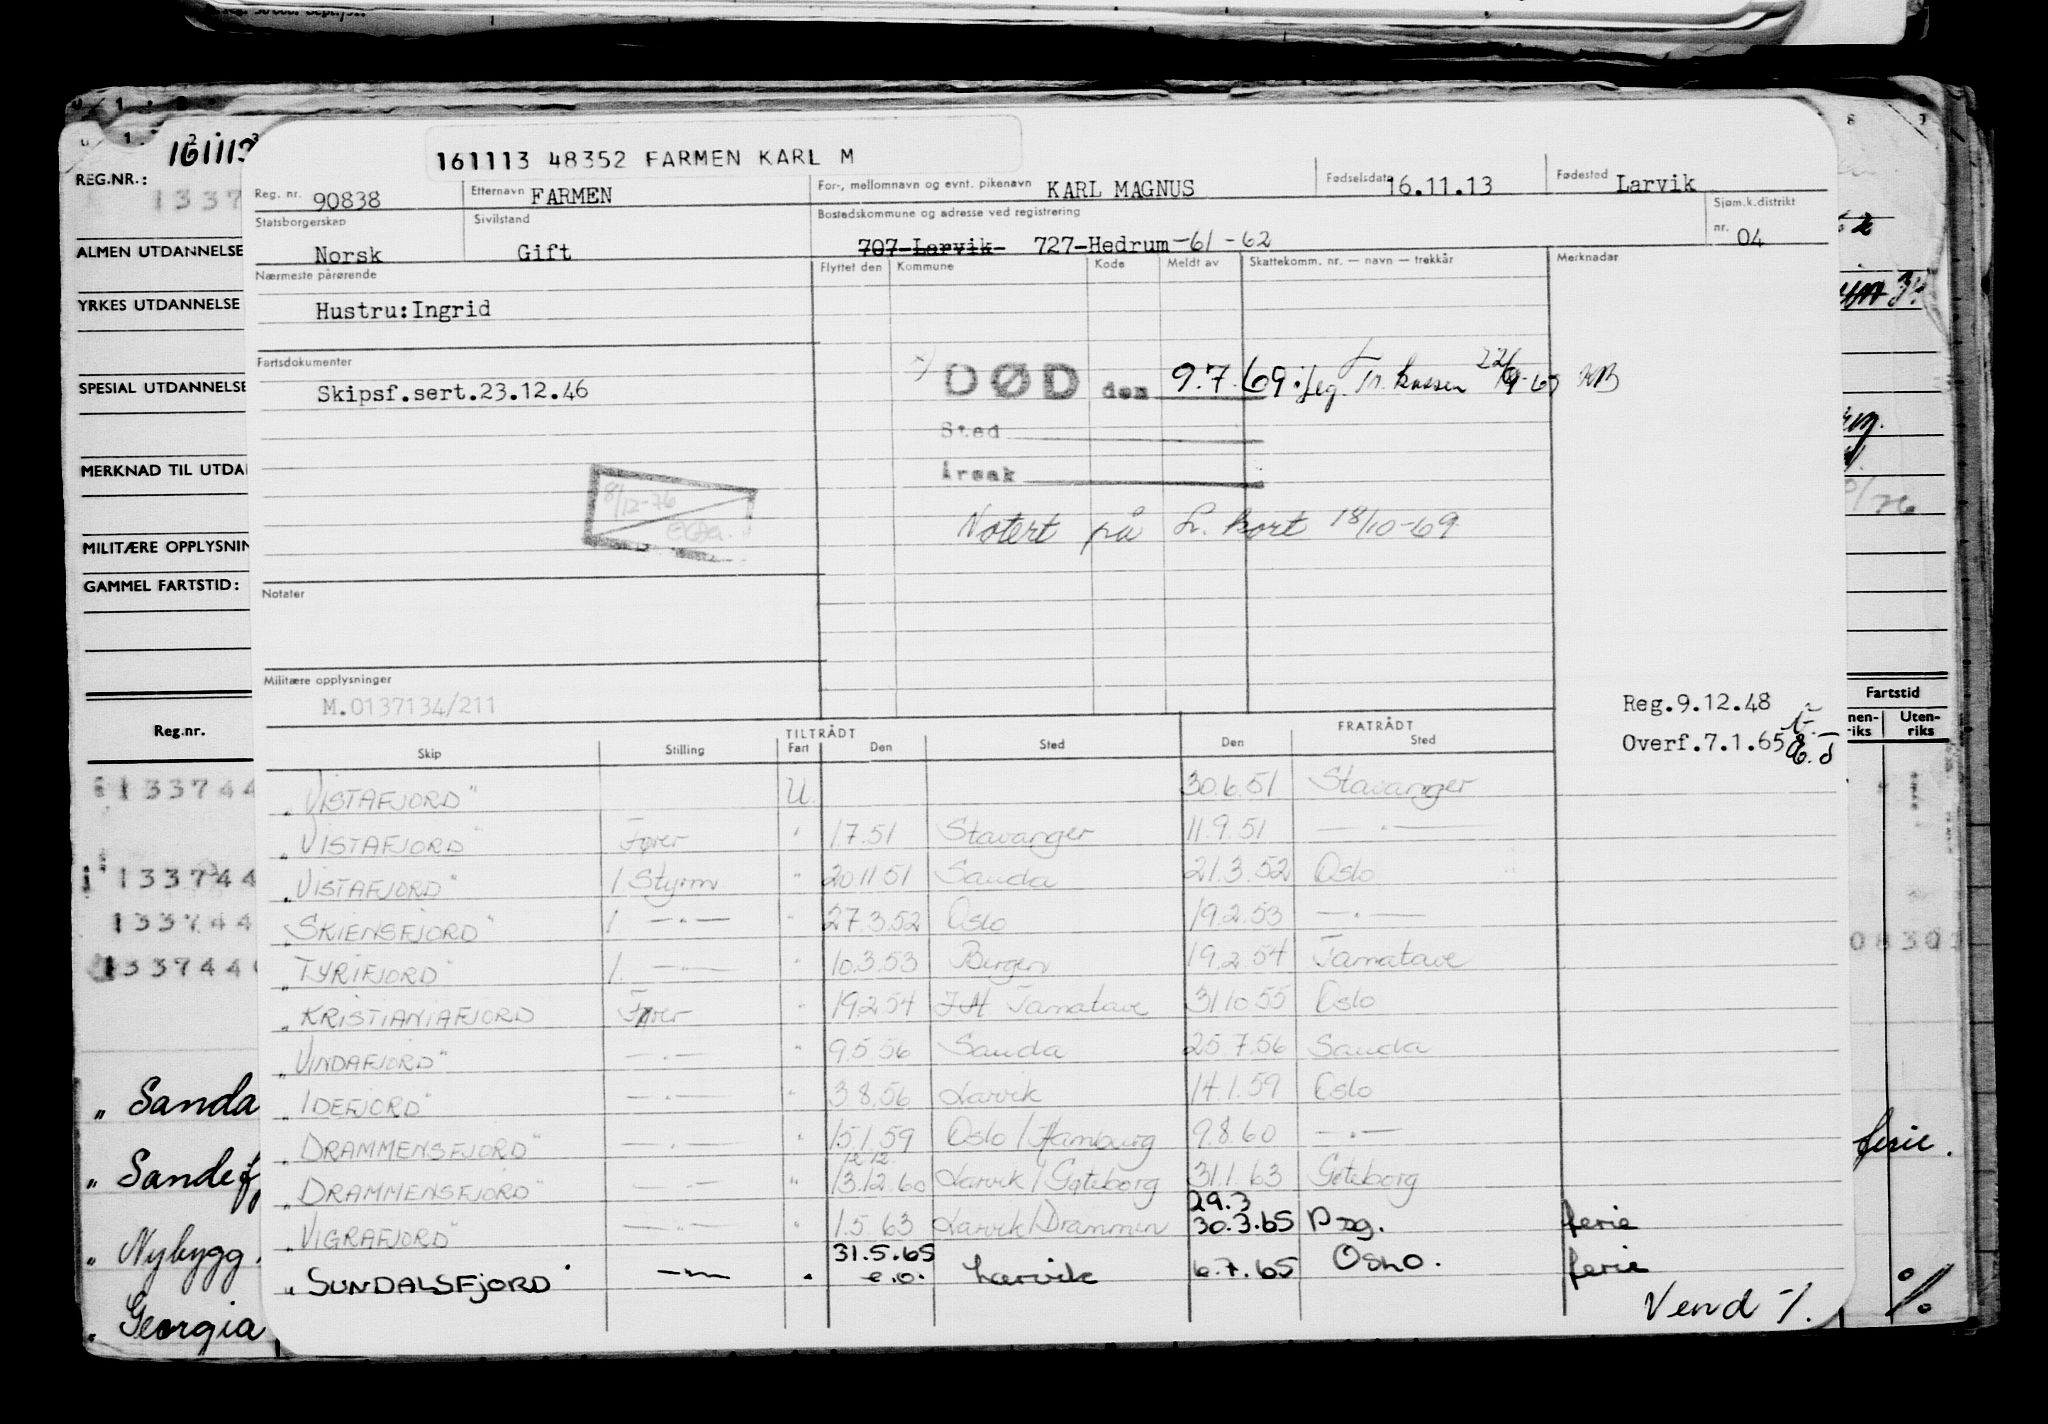 161113
161113 48352 FARMEN KARL M
REG.NR.:
Reg. nr. 90838 Etternavn FARMEN For-, mellomnavn og evnt. pikenavn KARL MAGNUS Fødselsdato 16.11.13 Fødested Larvik
Statsborgerskap Norsk Sivilstand Gift Bostedskommune og adresse ved registrering 707-Larvik- 727-Hedrum-61-62 Sjøm.k.distrikt nr. 04
ALMEN UTDANNELSE
Nærmeste pårørende Flyttet den Kommune Kode Meldt av Skattekomm. nr. — navn — trekkår Merknader
YRKES UTDANNELSE
Hustru: Ingrid
Fartsdokumenter
SPESIAL UTDANNELSE
Skipsf.sert.23.12.46
DØD den 9.7.69. KB
Sted
MERKNAD TIL UTDA
Årsak
8/12-76
Notert på L. kort 18/10-69
MILITÆRE OPPLYSNIN
GAMMEL FARTSTID:
Notater
Militære opplysninger
M.0137134/211
Reg.9.12.48
Overf.7.1.65
Fartstid
nen-riks Uten-riks
Reg.nr.
TILTRÅDT FRATRÅDT
Skip Stilling Fart Den Sted Den Sted
133744 "VISTAFJORD" U. 30.6.51 Stavanger
"VISTAFJORD" Fører " 1.7.51 Stavanger 11.9.51 —"—
133744 "VISTAFJORD" 1 Styrm " 20.11.51 Sauda 21.3.52 Oslo
133744 "SKIENSFJORD" 1 —"— " 27.3.52 Oslo 19.2.53 —"—
133744 "TYRIFJORD" 1. —"— " 10.3.53 Bergen 19.2.54 Tamatave
"KRISTIANIAFJORD Fører " 19.2.54 Tamatave 31.10.55 Oslo
"VINDAFJORD" —"— " 9.5.56 Sauda 25.7.56 Sauda
"IDEFJORD" —"— " 3.8.56 Larvik 14.1.59 Oslo
"DRAMMENSFJORD" —"— " 15.1.59 Oslo/Hamburg 9.8.60 —"—
12.12.
"DRAMMENSFJORD" —"— " 13.12.60 Larvik/Gøteborg 31.1.63 Gøteborg
29.3
"VIGRAFJORD" —"— " 1.5.63 Larvik/Drammen 30.3.65 Psg. ferie
31.5.65
"SUNDALSFJORD" —"— " e.o. Larvik 6.7.65 OSLO. ferie
Vend ./.
" Sanda
" Sandef
" Nybygg.
" Georgia
ferie.
%